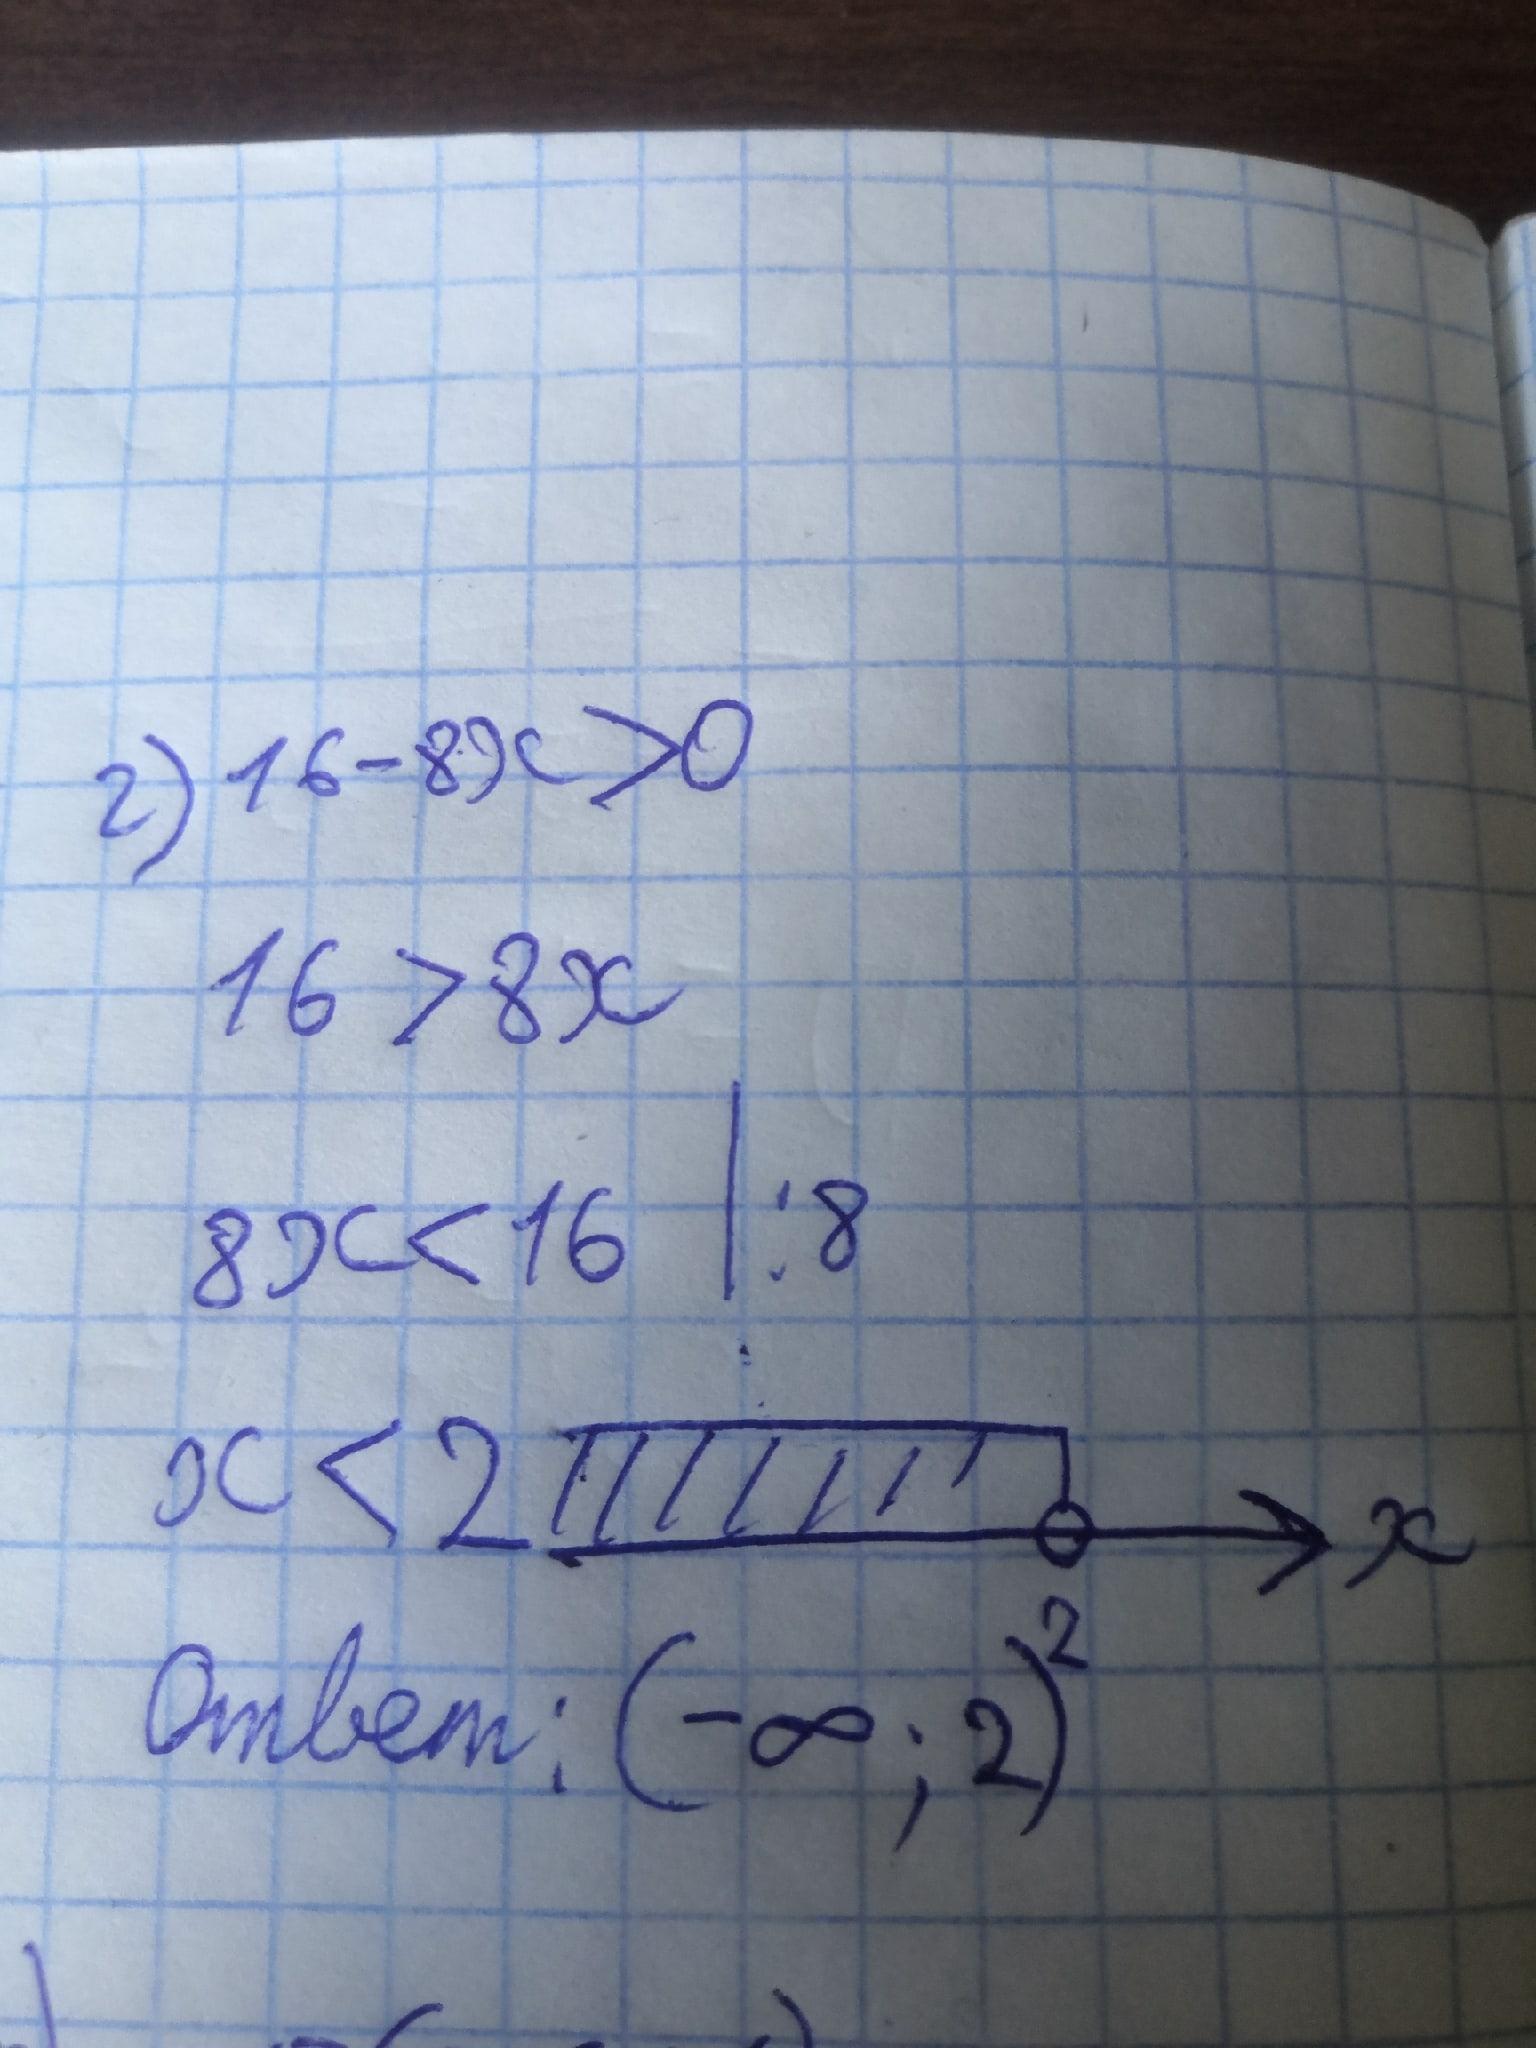 2) 16-8x>0
16 >8x
8x<16 | :8
x<2 x
2
Ответ: (-∞; 2)